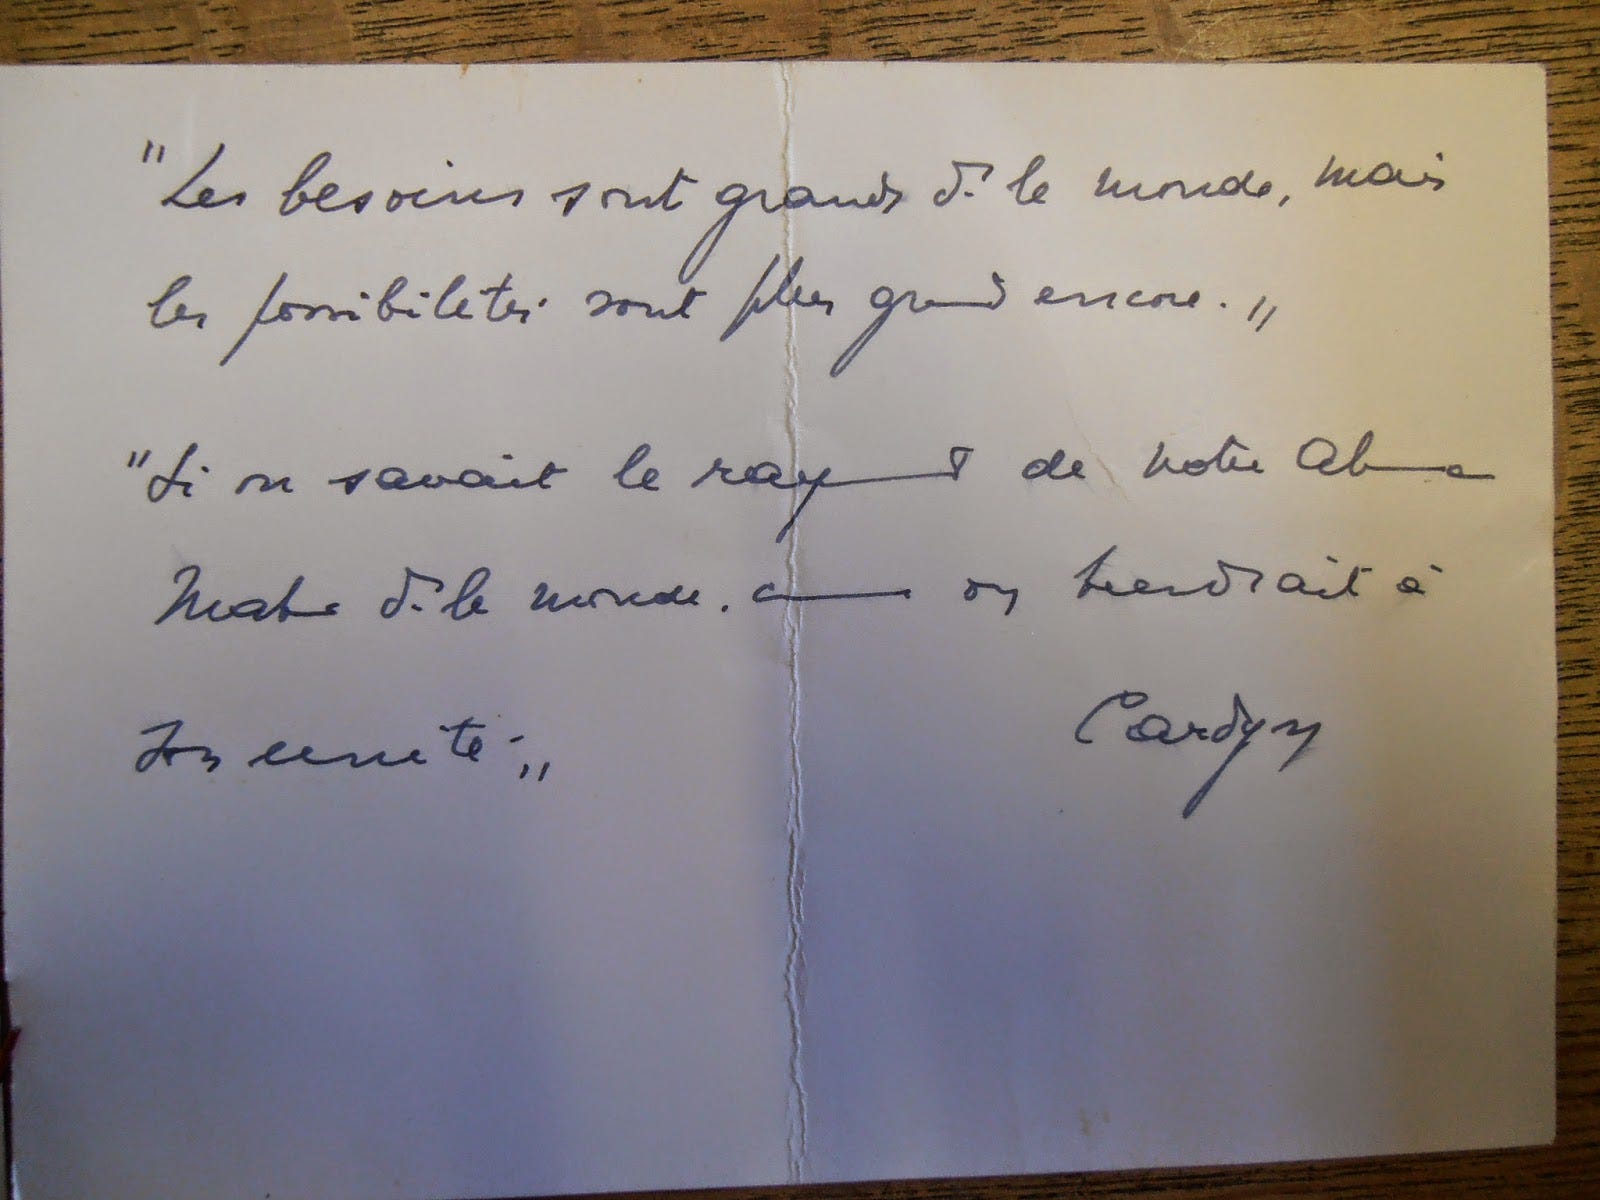 "Les besoins sont grands ds le monde, mais
les possibilités sont plus grand encore."
"Si on savait le rayonnement de notre Alma
Mater ds le monde. comme on tiendrait à
son unité."
Cardyn